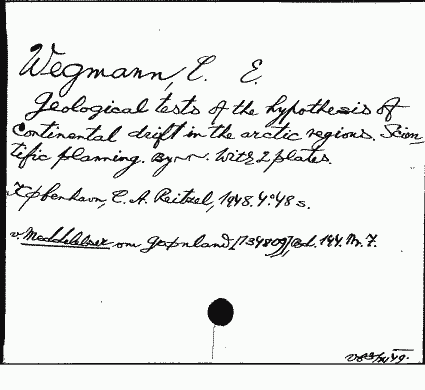 Wegmann, C. E.
Geological tests of the hypothesis of
Continental drift in the arctic regions. Scien-
tific planning. With 2 plates.
København, C. A. Reitzel, 1948. 4° 48 s.
v. Meddelelser om Grønland, [734809] Bd. 144. Nr. 7.